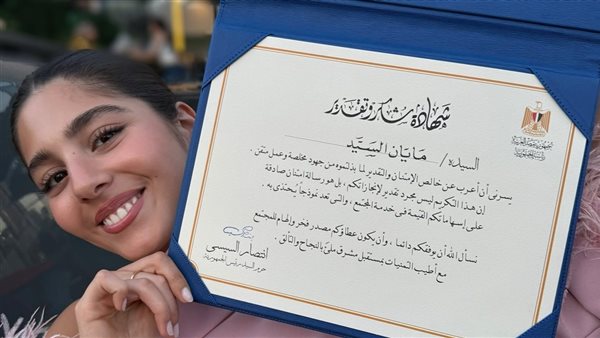 شهادة شكر وتقدير
السيدة/ مايان السيد
يسرنى أن أعرب عن خالص الإمتنان والتقدير لما بذلتموه من جهود مخلصة وعمل متقن .
إن هذا التكريم ليس مجرد تقدير لإنجازاتكم ، بل هو رسالة امتنان صادقة
على إسهاماتكم القيمة فى خدمة المجتمع ، والتى تعد نموذجاً يُحتذى به .
نسأل الله أن يوفقكم دائما ، وأن يكون عطاؤكم مصدر فخر وإلهام للمجتمع
مع أطيب التمنيات بمستقبل مشرق ملئ بالنجاح والتألق .
انتصار السيسى
حرم السيد رئيس الجمهورية